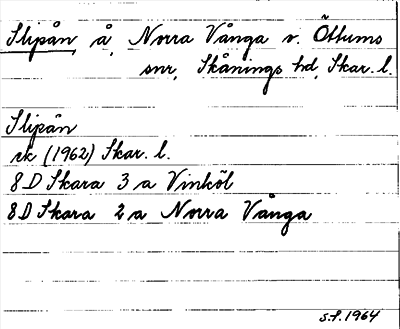 Slipån, å, Norra Vånga v. Öttums
snr, Skånings hd, Skar. l.
Slipån
rk (1962) Skar. l.
8D Skara 3 a Vinköl
8D Skara 2 a Norra Vånga
S.F. 1964